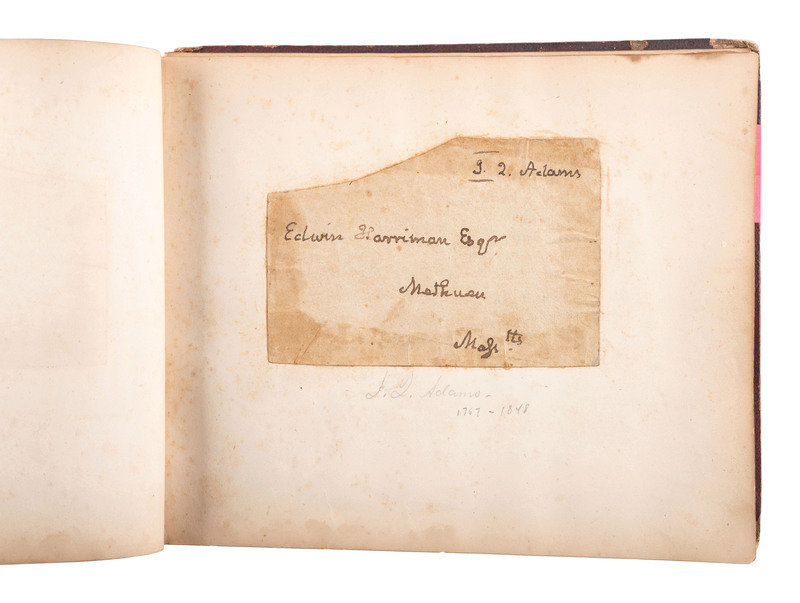 J. Q. Adams
Edwin Harriman Esqr
Methuen
Mass tts
J. Q. Adams -
1767 - 1848